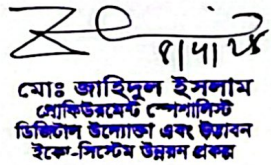 ৪/৭/২৪
মোঃ জাহিদুল ইসলাম
প্রোকিউরমেন্ট স্পেশালিস্ট
ডিজিটাল উদ্যোক্তা এবং উদ্ভাবন
ইকো-সিস্টেম উন্নয়ন প্রকল্প